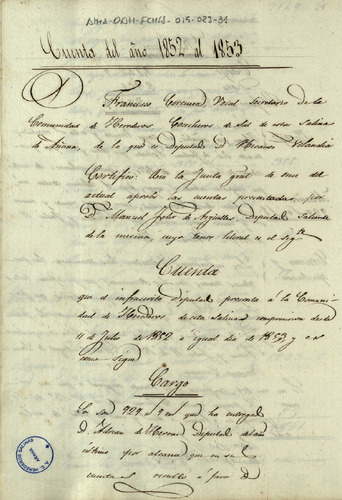 ATHA-DAH-FCHM-015-023-31
Cuenta del año 1852 al 1853
Francisco Vocal Secretario de la
Comunidad de Herederos de de esta Salina
de Añana, de la que es Diputado D. Nicanor
Certifico: Que la Junta gral de once del
actual aprobó las cuentas presentadas por
D. Manuel de Argüelles Diputado Saliente
de la misma, cuyo tenor literal es el sigte
Cuenta
que el infrascrito Diputado presenta á la Comuni-
dad de Herederos de esta Salina comprensiva desde
11 de Julio de 1852 a igual dia de 1853 y es
como sigue
Cargo
Lo son 929 r. que ha entregado
D. Adrian de Diputado del año
último por alcance que en su
cuenta el resultó a favor de